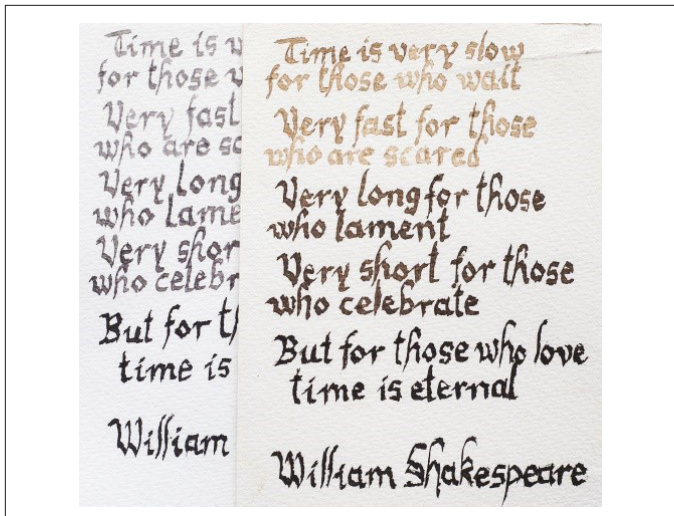 Time is v
for those v
Very fast
who are sc
Very long
who lame
Very shor
who celebr
But for th
time is
William
Time is very slow
for those who wait
Very fast for those
who are scared
Very long for those
who lament
Very short for those
who celebrate
But for those who love
time is eternal
William Shakespeare